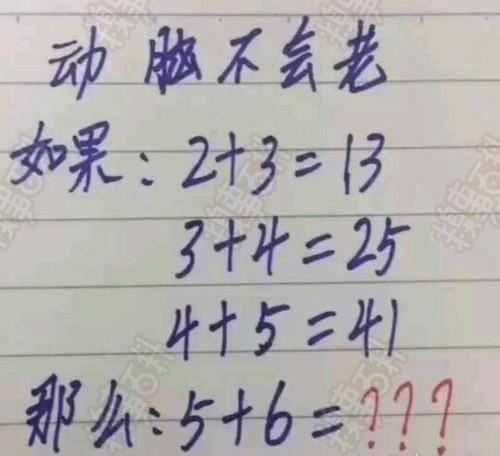 动脑不会老
如果：2+3=13
3+4=25
4+5=41
那么：5+6=???